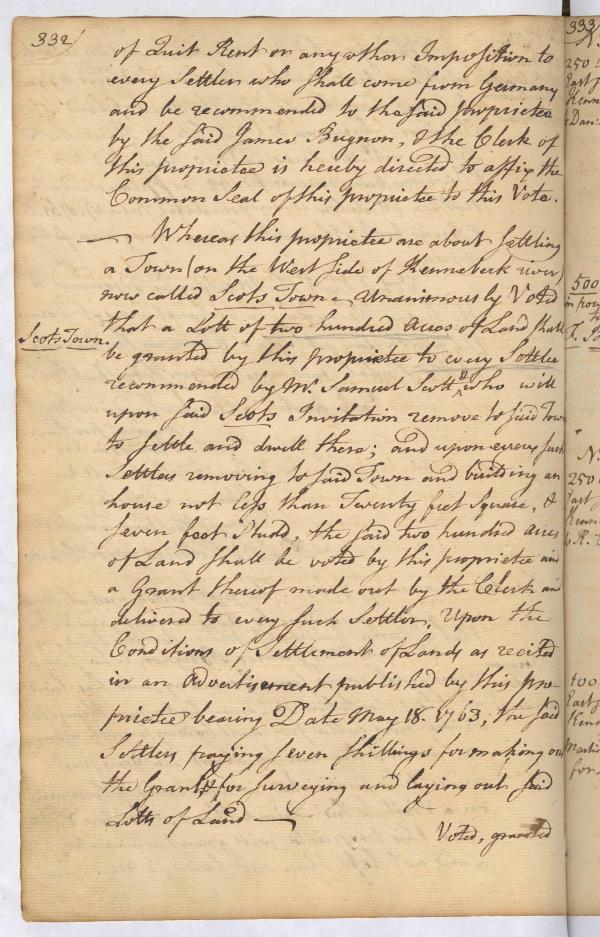 332/
of Quit Rent or any other Imposition to
every Settler who shall come from Germany
and be recommended to the said proprietee
by the said James Bugnon, & the Clerk of
this proprietee is hereby directed to affix the
Common Seal of this proprietee to this Vote.
Whereas this proprietee are about settling
a Town (on the West side of Kennebeck river)
now called Scots Town - Unanimously Voted
that a Lott of two hundred acres of Land shall
Scots Town.
be granted by this proprietee to every Settler
recommended by Mr. Samuel Scott & who will
upon said Scots Invitation remove to said Town
to settle and dwell there; and upon every such
Settlers removing to said Town and building an
house not less than Twenty feet Square, &
seven feet Studd, the said two hundred acres
of Land shall be voted by this proprietee and
a Grant thereof made out by the Clerk and
delivered to every such Settler, Upon the
Conditions of Settlement of Lands as recited
in an Advertisement published by this pro-
prietee bearing Date May 18. 1763; the said
Settlers paying seven shillings for making out
the Grant, & for surveying and laying out said
Lotts of Land
Voted, granted
333
N
250
East
Kenne
& Dan:
500
in pow
to
N
250
East
Kenne
to R.
100
East
Kenn
Marti
for